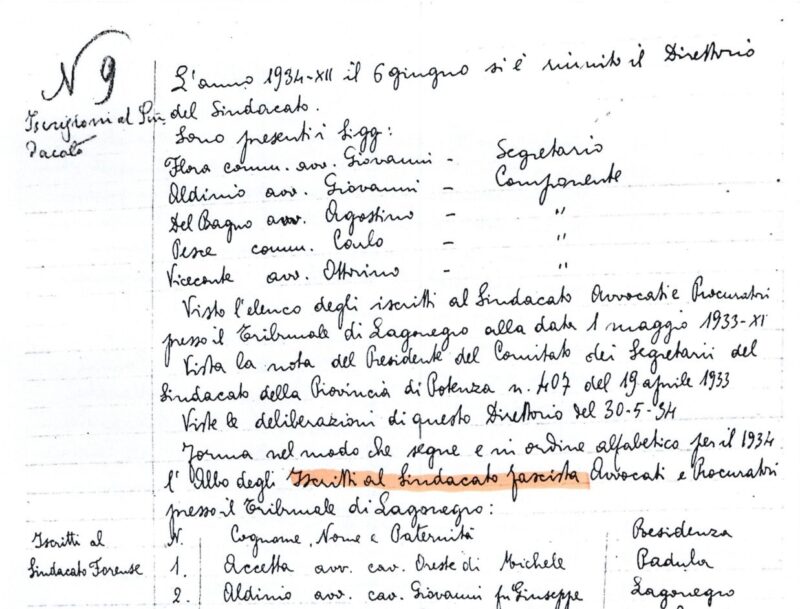 N 9
Iscrizioni al Sin
dacato
L'anno 1934-XII il 6 giugno si è riunito il Direttorio
del Sindacato.
Sono presenti i Sigg:
Flora comm. avv. Giovanni - Segretario
Aldinio avv. Giovanni - Componente
Del Bagno avv. Agostino - "
Pesce comm. Carlo - "
Viceconte avv. Ottorino - "
Visto l'elenco degli iscritti al Sindacato Avvocati e Procuratori
presso il Tribunale di Lagonegro alla data 1 maggio 1933-XI
Vista la nota del Presidente del Comitato dei Segretarii del
Sindacato della Provincia di Potenza n. 407 del 19 aprile 1933
Viste le deliberazioni di questo Direttorio del 30-5-34
Forma nel modo che segue e in ordine alfabetico per il 1934
l'Albo degli Iscritti al Sindacato fascista Avvocati e Procuratori
presso il Tribunale di Lagonegro:
Iscritti al
Sindacato Forense
N. Cognome, Nome e Paternità Residenza
1. Accetta avv. cav. Oreste di Michele Padula
2. Aldinio avv. cav. Giovanni fu Giuseppe Lagonegro